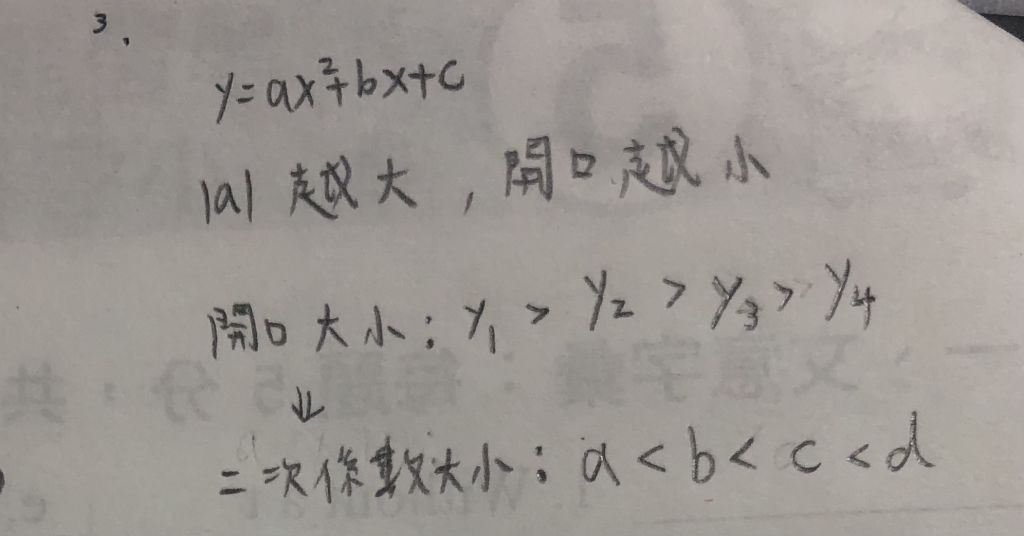 3.
y=ax²+bx+c
|a| 越大，開口越小
開口大小：y₁ > y₂ > y₃ > y₄
⇓
二次係數大小：a < b < c < d